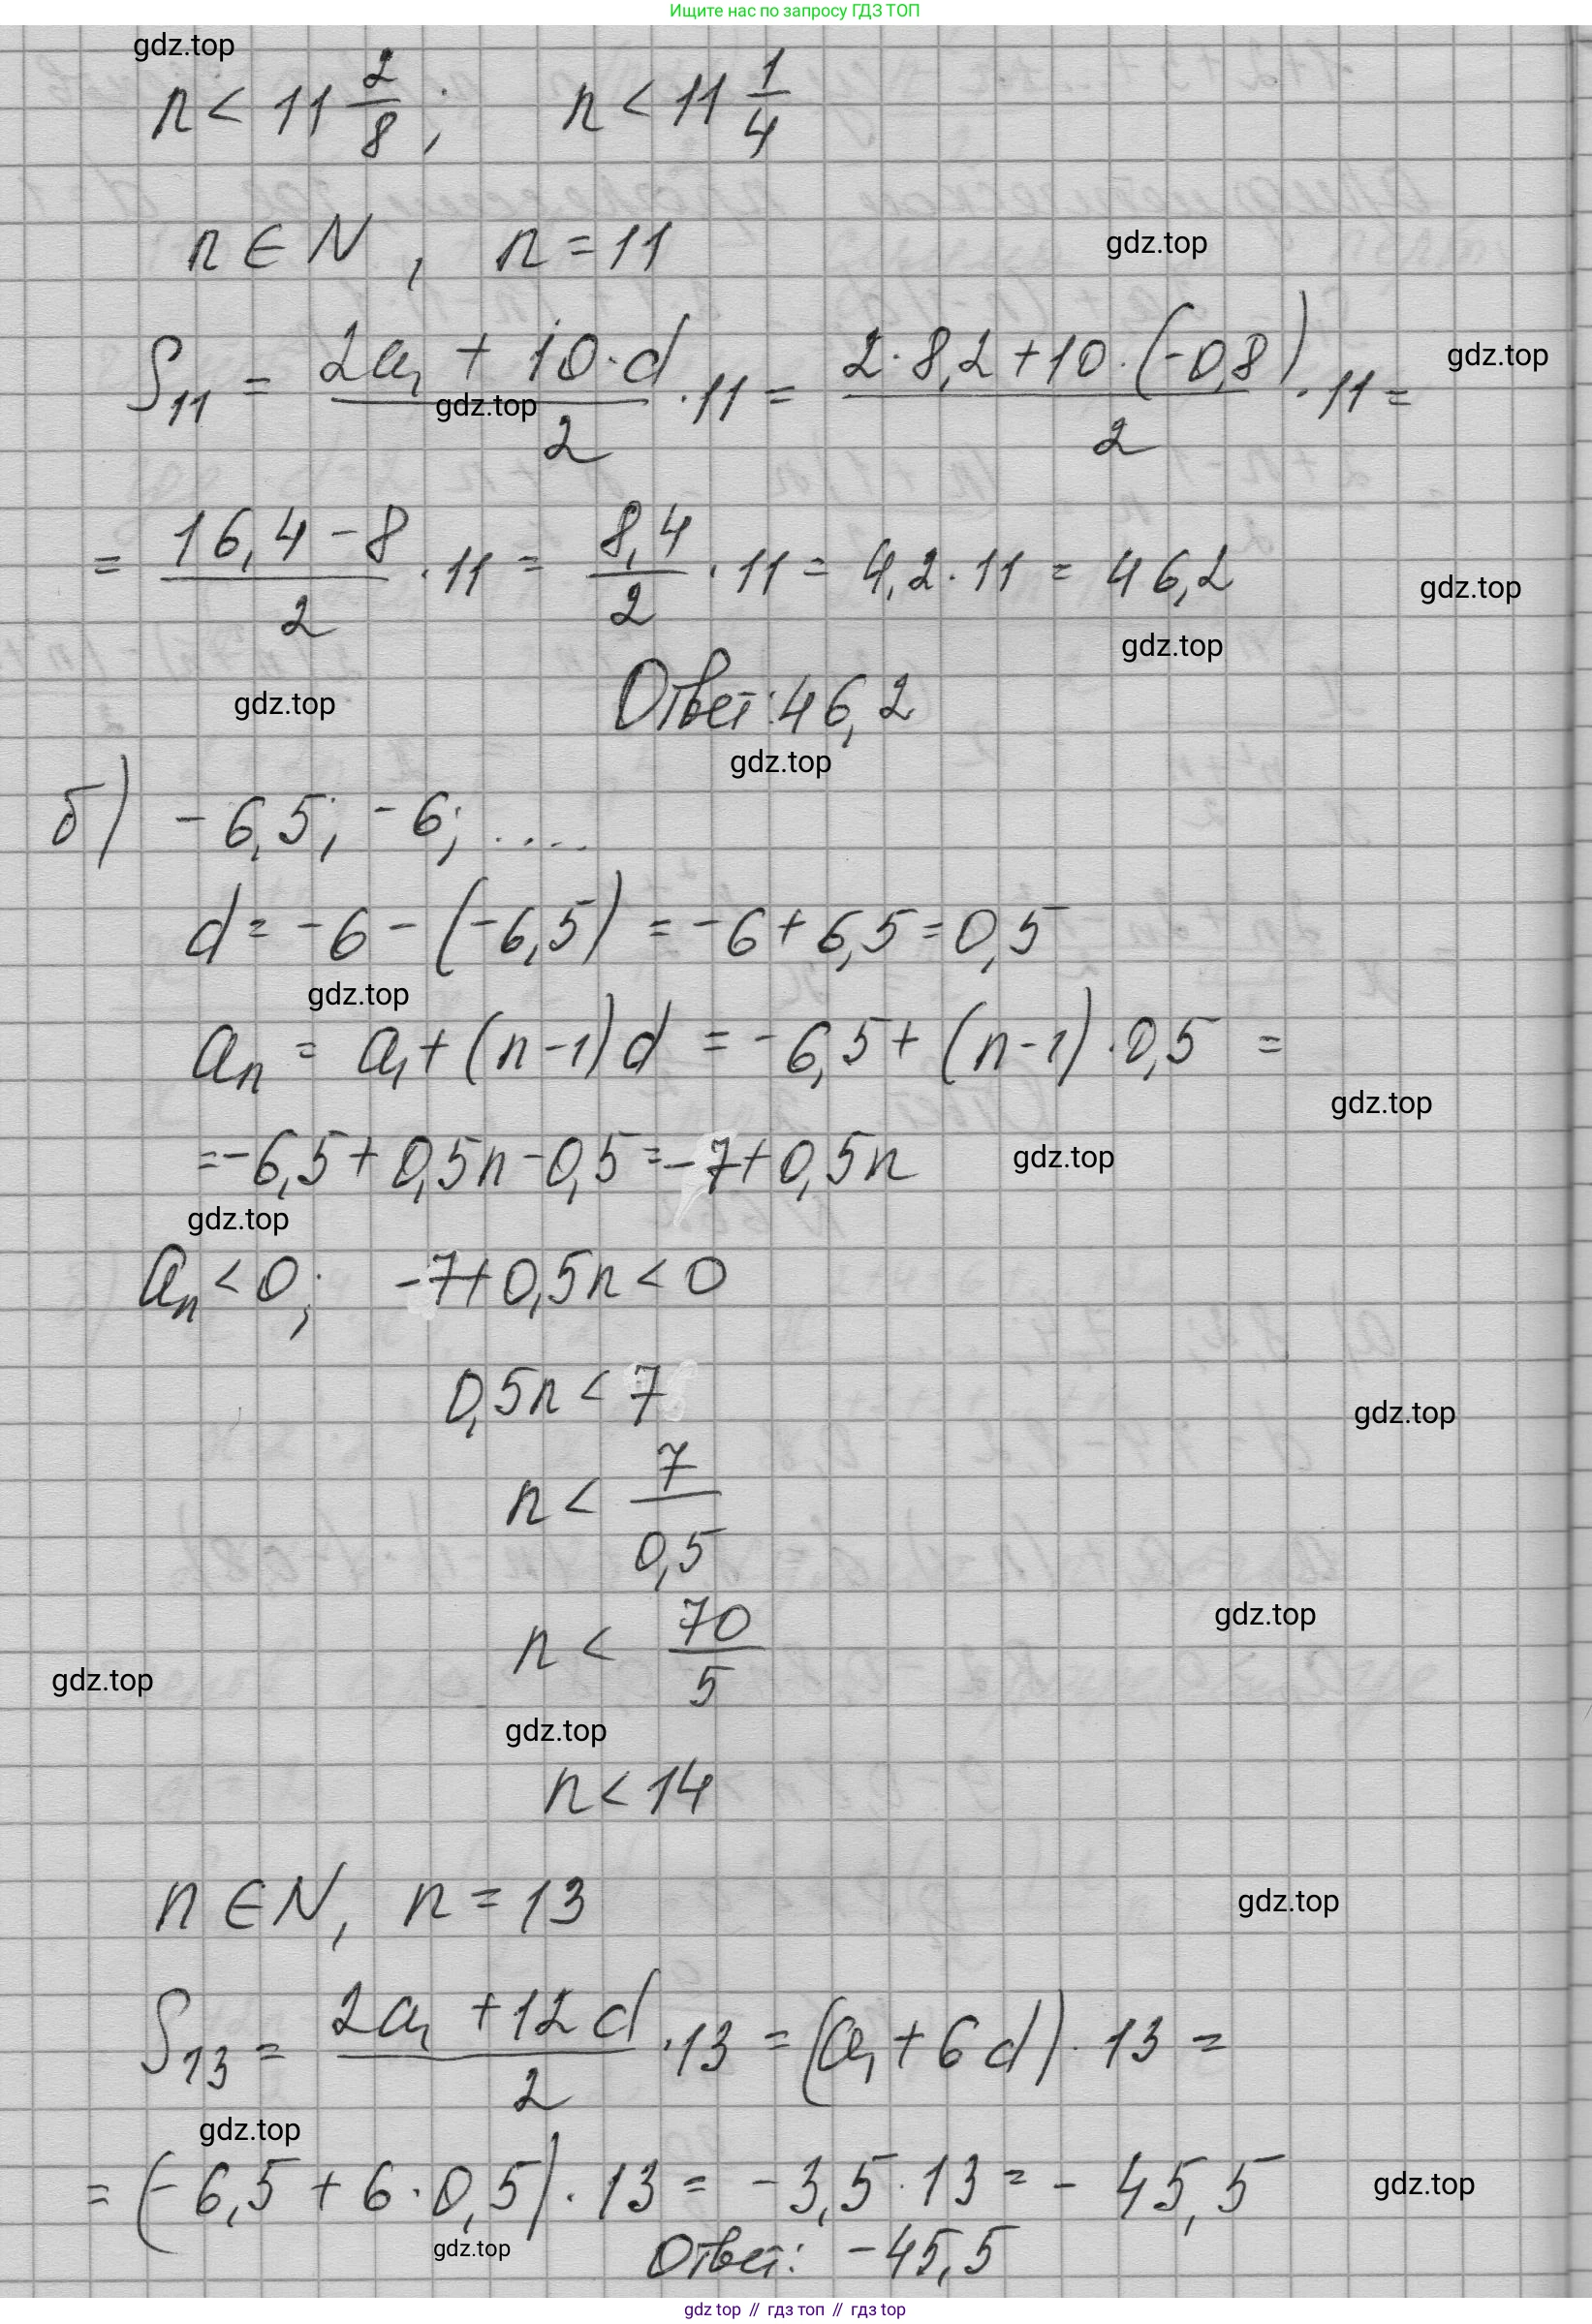 Ищите нас по запросу ГДЗ ТОП
gdz.top
n < 11 2/8 ; n < 11 1/4
n ∈ N , n = 11
gdz.top
S₁₁ = (2a₁ + 10·d)/2 · 11 = (2·8,2 + 10·(-0,8))/2 · 11 =
gdz.top
gdz.top
= (16,4 - 8)/2 · 11 = 8,4/2 · 11 = 4,2 · 11 = 46,2
gdz.top
gdz.top
Ответ: 46,2
gdz.top
gdz.top
б) -6,5; -6; ....
d = -6 - (-6,5) = -6 + 6,5 = 0,5
gdz.top
aₙ = a₁ + (n-1)d = -6,5 + (n-1)·0,5 =
gdz.top
= -6,5 + 0,5n - 0,5 = -7 + 0,5n
gdz.top
gdz.top
aₙ < 0; -7 + 0,5n < 0
0,5n < 7
gdz.top
n < 7/0,5
n < 70/5
gdz.top
gdz.top
gdz.top
n < 14
n ∈ N, n = 13
gdz.top
S₁₃ = (2a₁ + 12d)/2 · 13 = (a₁ + 6d) · 13 =
gdz.top
= (-6,5 + 6·0,5) · 13 = -3,5 · 13 = -45,5
gdz.top
gdz.top
Ответ: -45,5
gdz top // гдз топ // gdz top